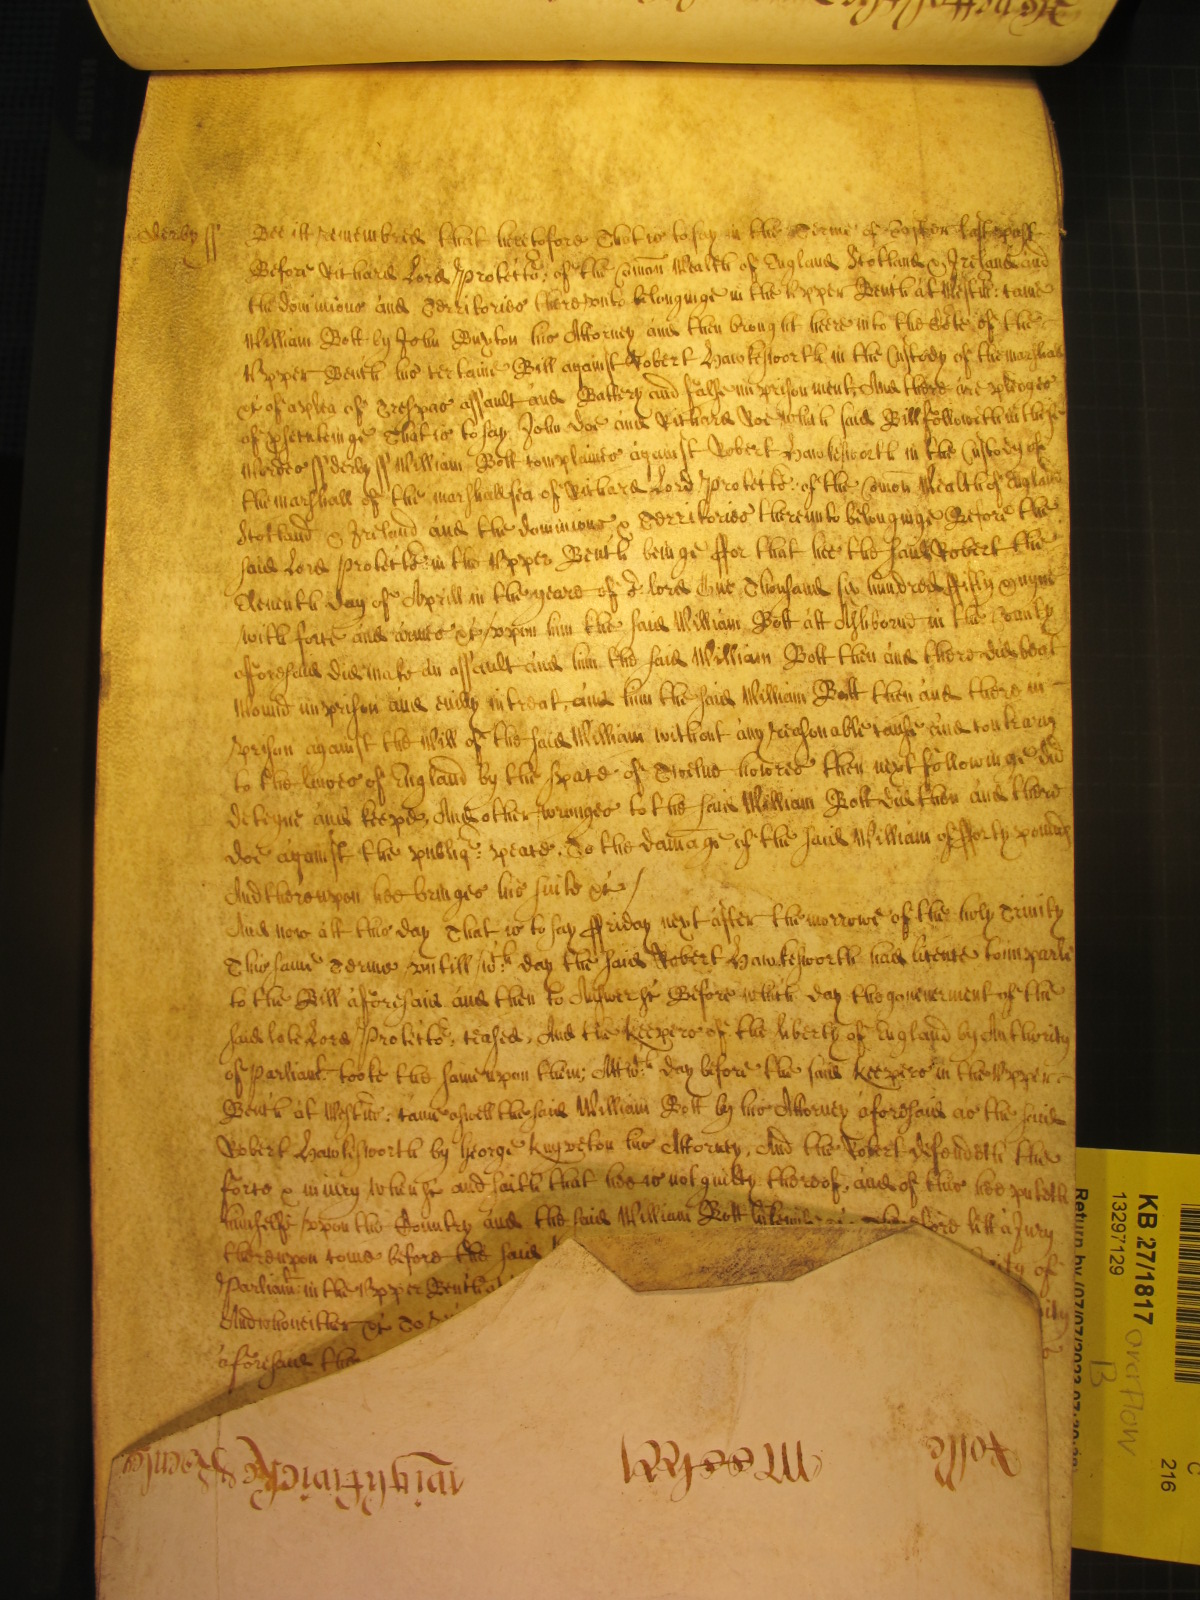 derby ss Bee itt remembred that heretofore That is to say in the Terme of Easter last past
Before Richard Lord Protector of the Comon Wealth of England Scotland & Ireland and
the dominions and Territories thereunto belonginge in the Upper Bench att Westmr: came
William Bott by John Buxton his Attorney and then brought heere into the Cote of the
Upper Bench his certaine Bill against Robert Hawkesworth in the Custody of the marshall
&c of a plea of Trespas assault and Battery and false imprisonment, And there are pledges
of prsecuteinge That is to say John Doe and Richard Roe which said Bill followeth in these
Wordes ss derby ss William Bott complaines against Robert Hawkesworth in the Custody of
the marshall of the marshallsea of Richard Lord Protectr: of the Comon Wealth of England
Scotland & Ireland and the dominions & Territories thereunto belonginge Before the
said Lord Protectr: in the Upper Bench beinge ffor that hee the said Robert the
Eleventh day of Aprill in the yeare of or lord One Thousand six hundred ffifty & nyne
with force and armes &c uppon him the said William Bott att Ashborne in the County
afforesaid did make an assault and him the said William Bott then and there did beat
Wound imprison and evilly intreat, and him the said William Bott then and there in
prison against the Will of the said William without any reasonable cause and contrary
to the lawes of England by the space of Twelve howres then next followinge did
deteyne and keepe, And other wronges to the said William Bott did then and there
doe against the publiq: peace, To the damage of the said William of fforty pounds
And thereupon hee bringes his suite &c /
And now att this day That is to say ffriday next after the morrowe of the holy Trinity
This same Terme untill wch day the said Robert Hawkesworth had licence to imparle
to the Bill aforesaid and then to Answer &c Before which day the governement of the
said late Lord Protectr: ceased, And the Keepers of the liberty of England by Authority
of Parliamt: tooke the same upon them; Att wch day before the said Keepers in the Upper
Bench at Westmr: came aswell the said William Bott by his Attorney aforesaid as the said
Robert Hawkesworth by George Knyveton his Attorney, And the Robert defendeth the
force & iniury when &c and saith that hee is not guilty thereof, and of this hee putteth
himselfe uppon the Country and the said William Bott likewise Therefore lett a Jury
thereupon come before the said
Parliamt: in the Upper Bench at
And who neither &c To
aforesaid the
Rolle Mccxxi wightwicke & Roules
KB 27/1817
13297129
overflow
B
216
C